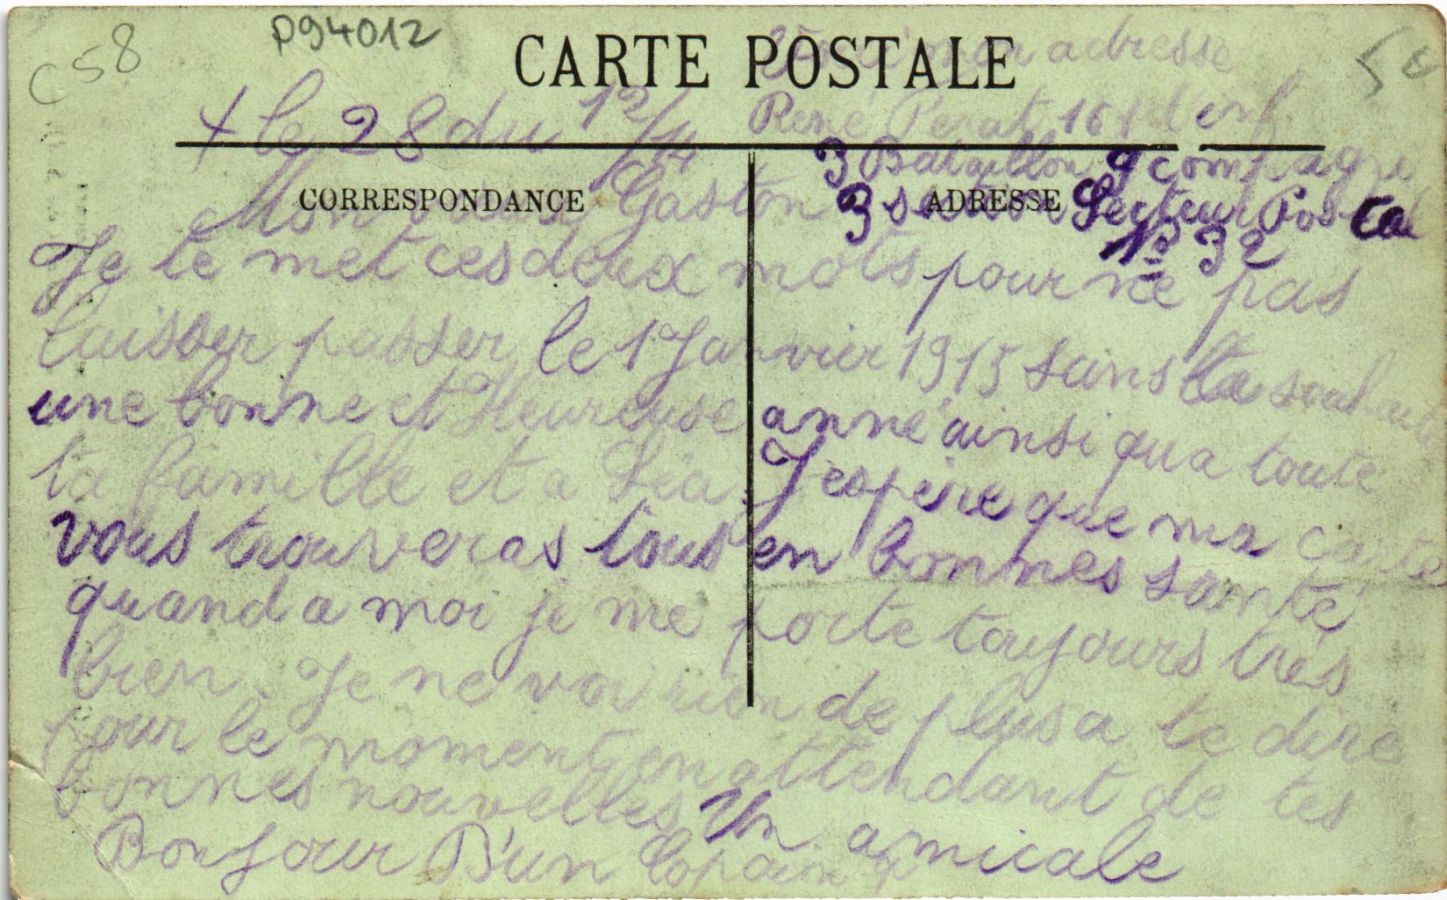 C 58
P94012
CARTE POSTALE
mon adresse
René Perat 161 d inf.
+ le 28 du 12/14
3 Bataillon 9 compagni
CORRESPONDANCE
ADRESSE
3 Secteur Postal
Mon Gaston
No 32
Je te met ces deux mots pour ne pas
laisser passer le 1 Janvier 1915 sans te souhaiter
une bonne et Heureuse anné ainsi qua toute
ta famille et a Léa. J'espère que ma carte
vous trouveras tous en bonnes santé
quand a moi je me porte toujours très
bien. Je ne voi rien de plus a te dire
pour le moment en attendant de tes
bonnes nouvelles Un amicale
Bonjour D'un Copain